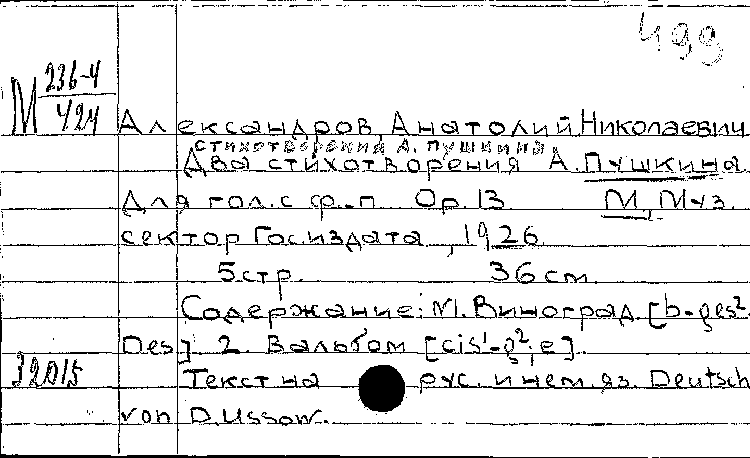 499
М 236-4
424
Александров, Анатолий Николаевич
стихотворения А. Пушкина
Два стихотворения А. Пушкина.
Для гол. с ф.-п. Op. 13 М, Муз.
сектор Госиздата, 1926.
5 стр. 36 см.
Содержание: М. Виноград. [b-ges².
Des] 2. Вальбом [cis¹-g², e].
32015 Текст на рус. и нем. яз. Deutsch
von D. Ussow.